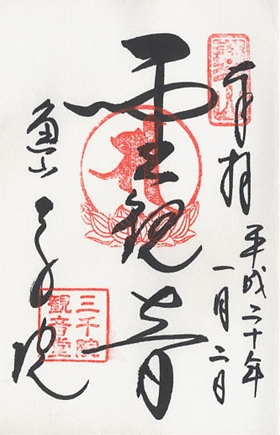 奉拝
平成二十年
一月二日
聖観音
魚山
三千院
三千院
観音堂